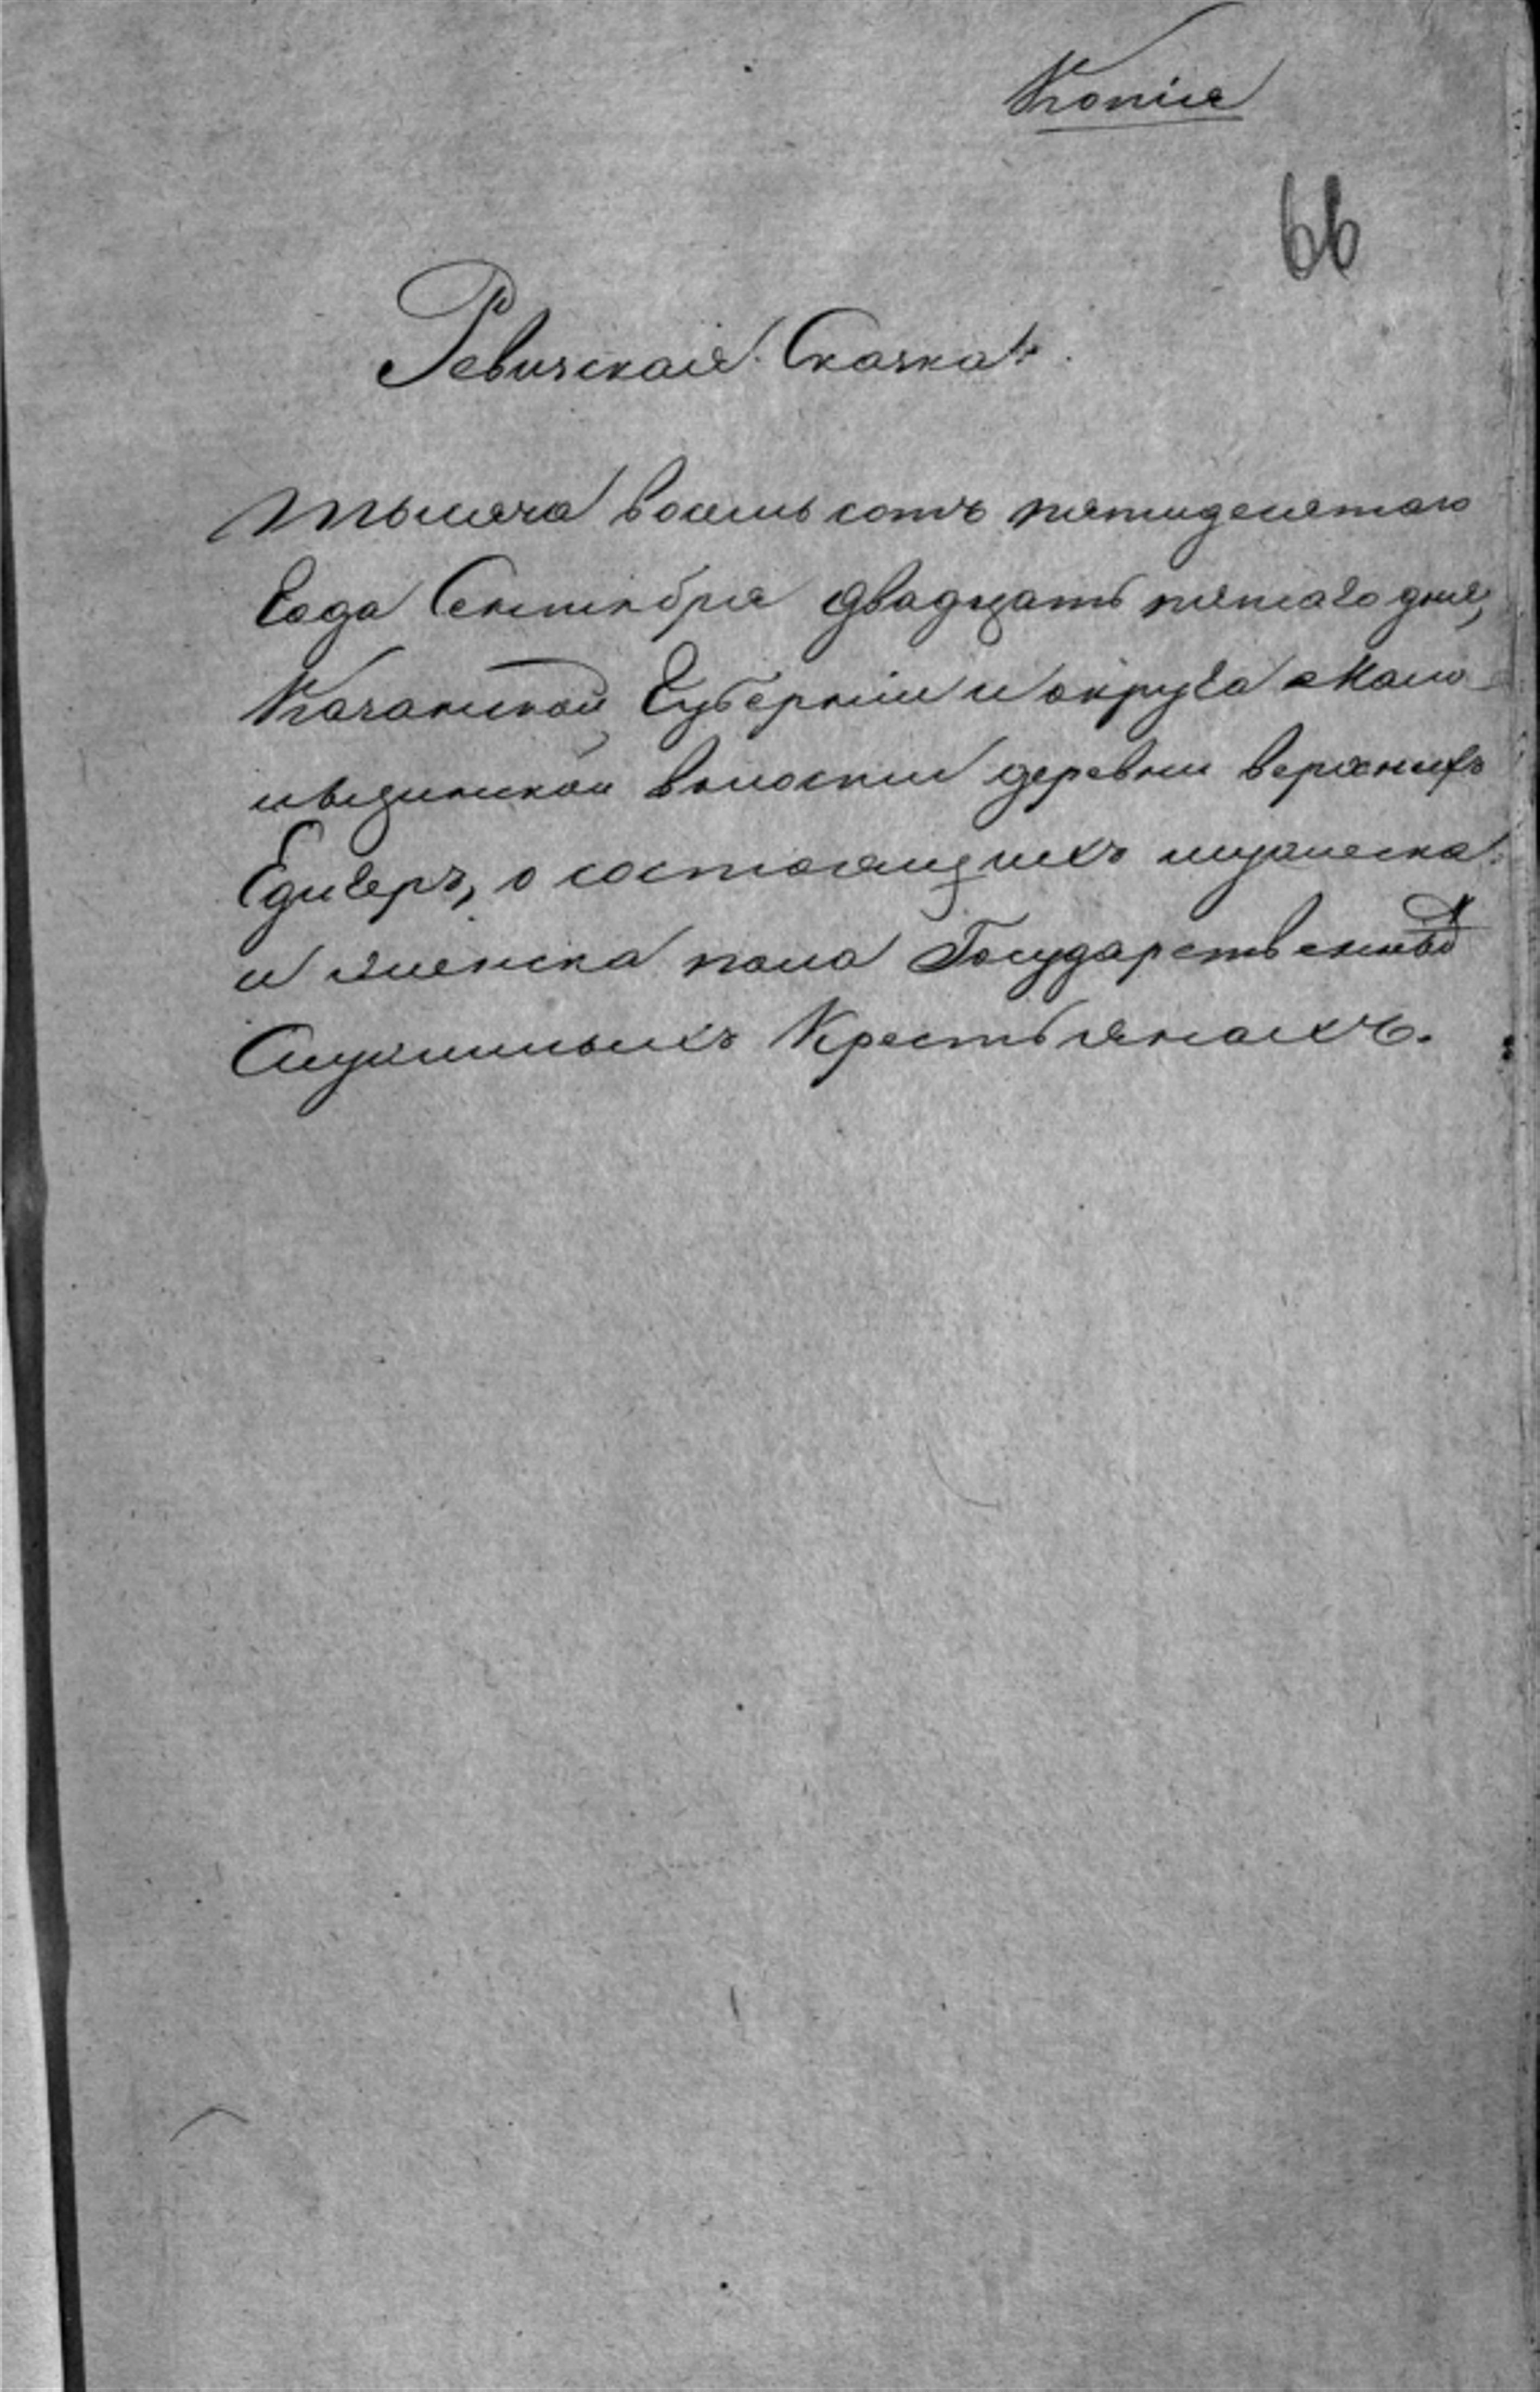 Копія
66
Ревизская Сказка.
Тысяча восемь сотъ пятидесятаго
Года Сентября двадцать пятаго дня,
Казанской Губерніи и округа Мамо-
деревни верхнихъ
Едигеръ, о состоящихъ мужеска
и женска пола Государственныхъ
Служилыхъ Крестьянахъ.